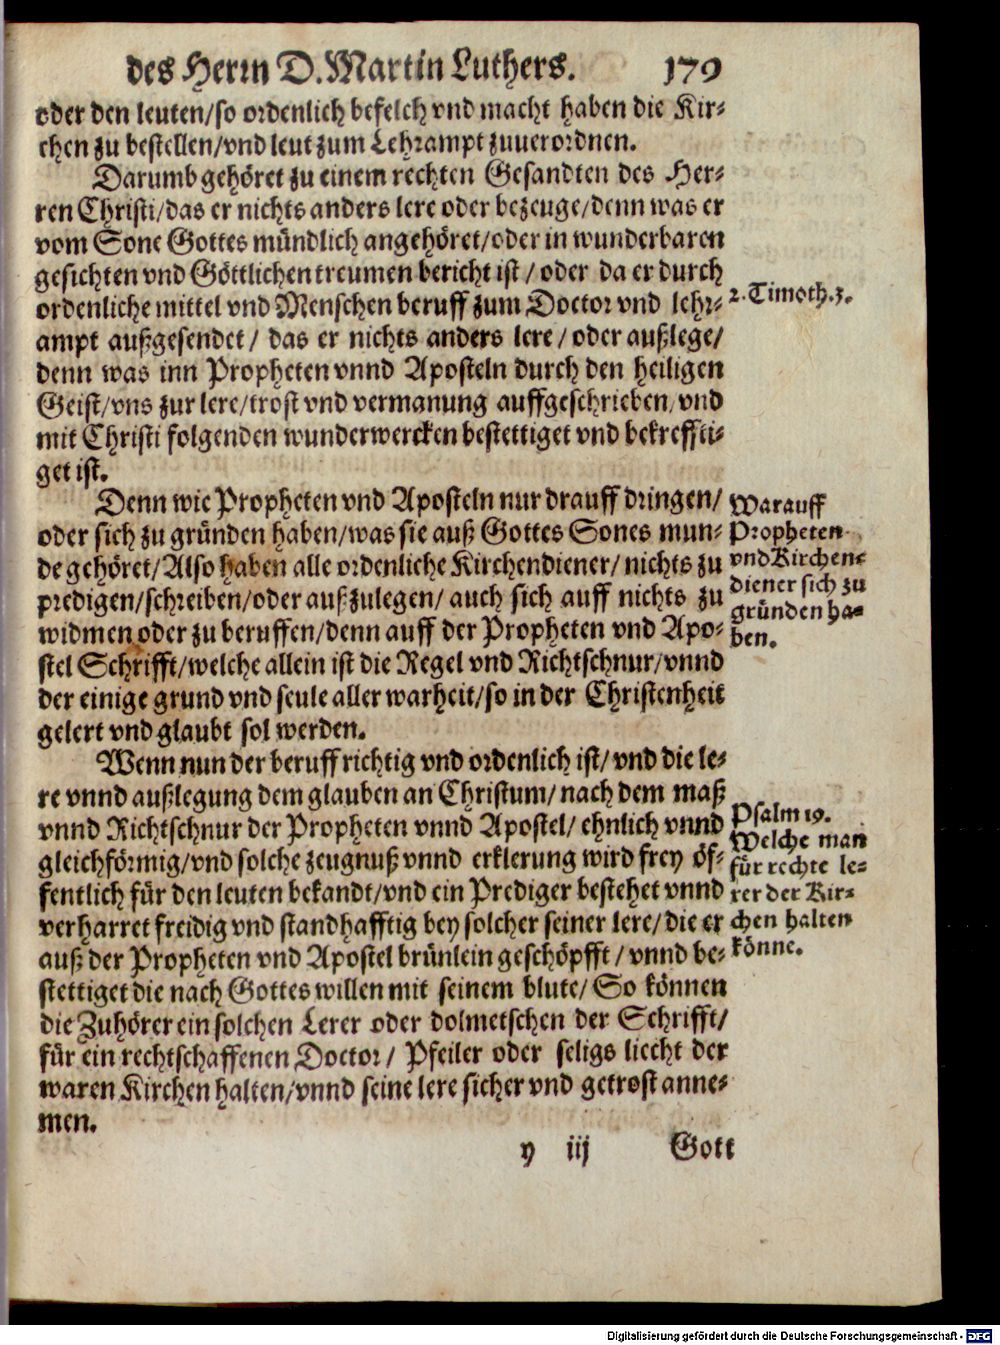 des Herrn D. Martin Luthers. 179
oder den leuten/so ordenlich befelch vnd macht haben die Kir-
chen zu bestellen/vnd leut zum Lehrampt zuuerordnen.
Darumb gehöret zu einem rechten Gesandten des Her-
ren Christi/das er nichts anders lere oder bezeuge/denn was er
vom Sone Gottes mündlich angehöret/oder in wunderbaren
gesichten vnd Göttlichen treumen bericht ist/oder da er durch
ordenliche mittel vnd Menschen beruff zum Doctor vnd lehr-
2. Timoth. 3.
ampt außgesendet/ das er nichts anders lere/oder außlege/
denn was inn Propheten vnnd Aposteln durch den heiligen
Geist/vns zur lere/trost vnd vermanung auffgeschrieben/vnd
mit Christi folgenden wunderwercken bestettiget vnd bekreffti-
get ist.
Denn wie Propheten vnd Aposteln nur drauff dringen/
oder sich zu gründen haben/was sie auß Gottes Sones mun-
de gehöret/Also haben alle ordenliche Kirchendiener/nichts zu
predigen/schreiben/oder außzulegen/auch sich auff nichts zu
widmen oder zu beruffen/denn auff der Propheten vnd Apo-
stel Schrifft/welche allein ist die Regel vnd Richtschnur/vnnd
der einige grund vnd seule aller warheit/so in der Christenheit
gelert vnd glaubt sol werden.
Warauff
Propheten
vnd Kirchen-
diener sich zu
gründen ha-
ben.
Wenn nun der beruff richtig vnd ordenlich ist/vnd die le-
re vnnd außlegung dem glauben an Christum/nach dem maß
vnnd Richtschnur der Propheten vnnd Apostel/ehnlich vnnd
gleichförmig/vnd solche zeugnuß vnnd erklerung wird frey öf-
fentlich für den leuten bekandt/vnd ein Prediger bestehet vnnd
verharret freidig vnd standhafftig bey solcher seiner lere/die er
auß der Propheten vnd Apostel brünlein geschöpfft/vnnd be-
stettiget die nach Gottes willen mit seinem blute/So können
die Zuhörer ein solchen Lerer oder dolmetschen der Schrifft/
für ein rechtschaffenen Doctor/ Pfeiler oder seligs liecht der
waren Kirchen halten/vnnd seine lere sicher vnd getrost anne-
men.
Psalm 19.
Welche man
für rechte le-
rer der Kir-
chen halten
könne.
y iij Gott
Digitalisierung gefördert durch die Deutsche Forschungsgemeinschaft - DFG